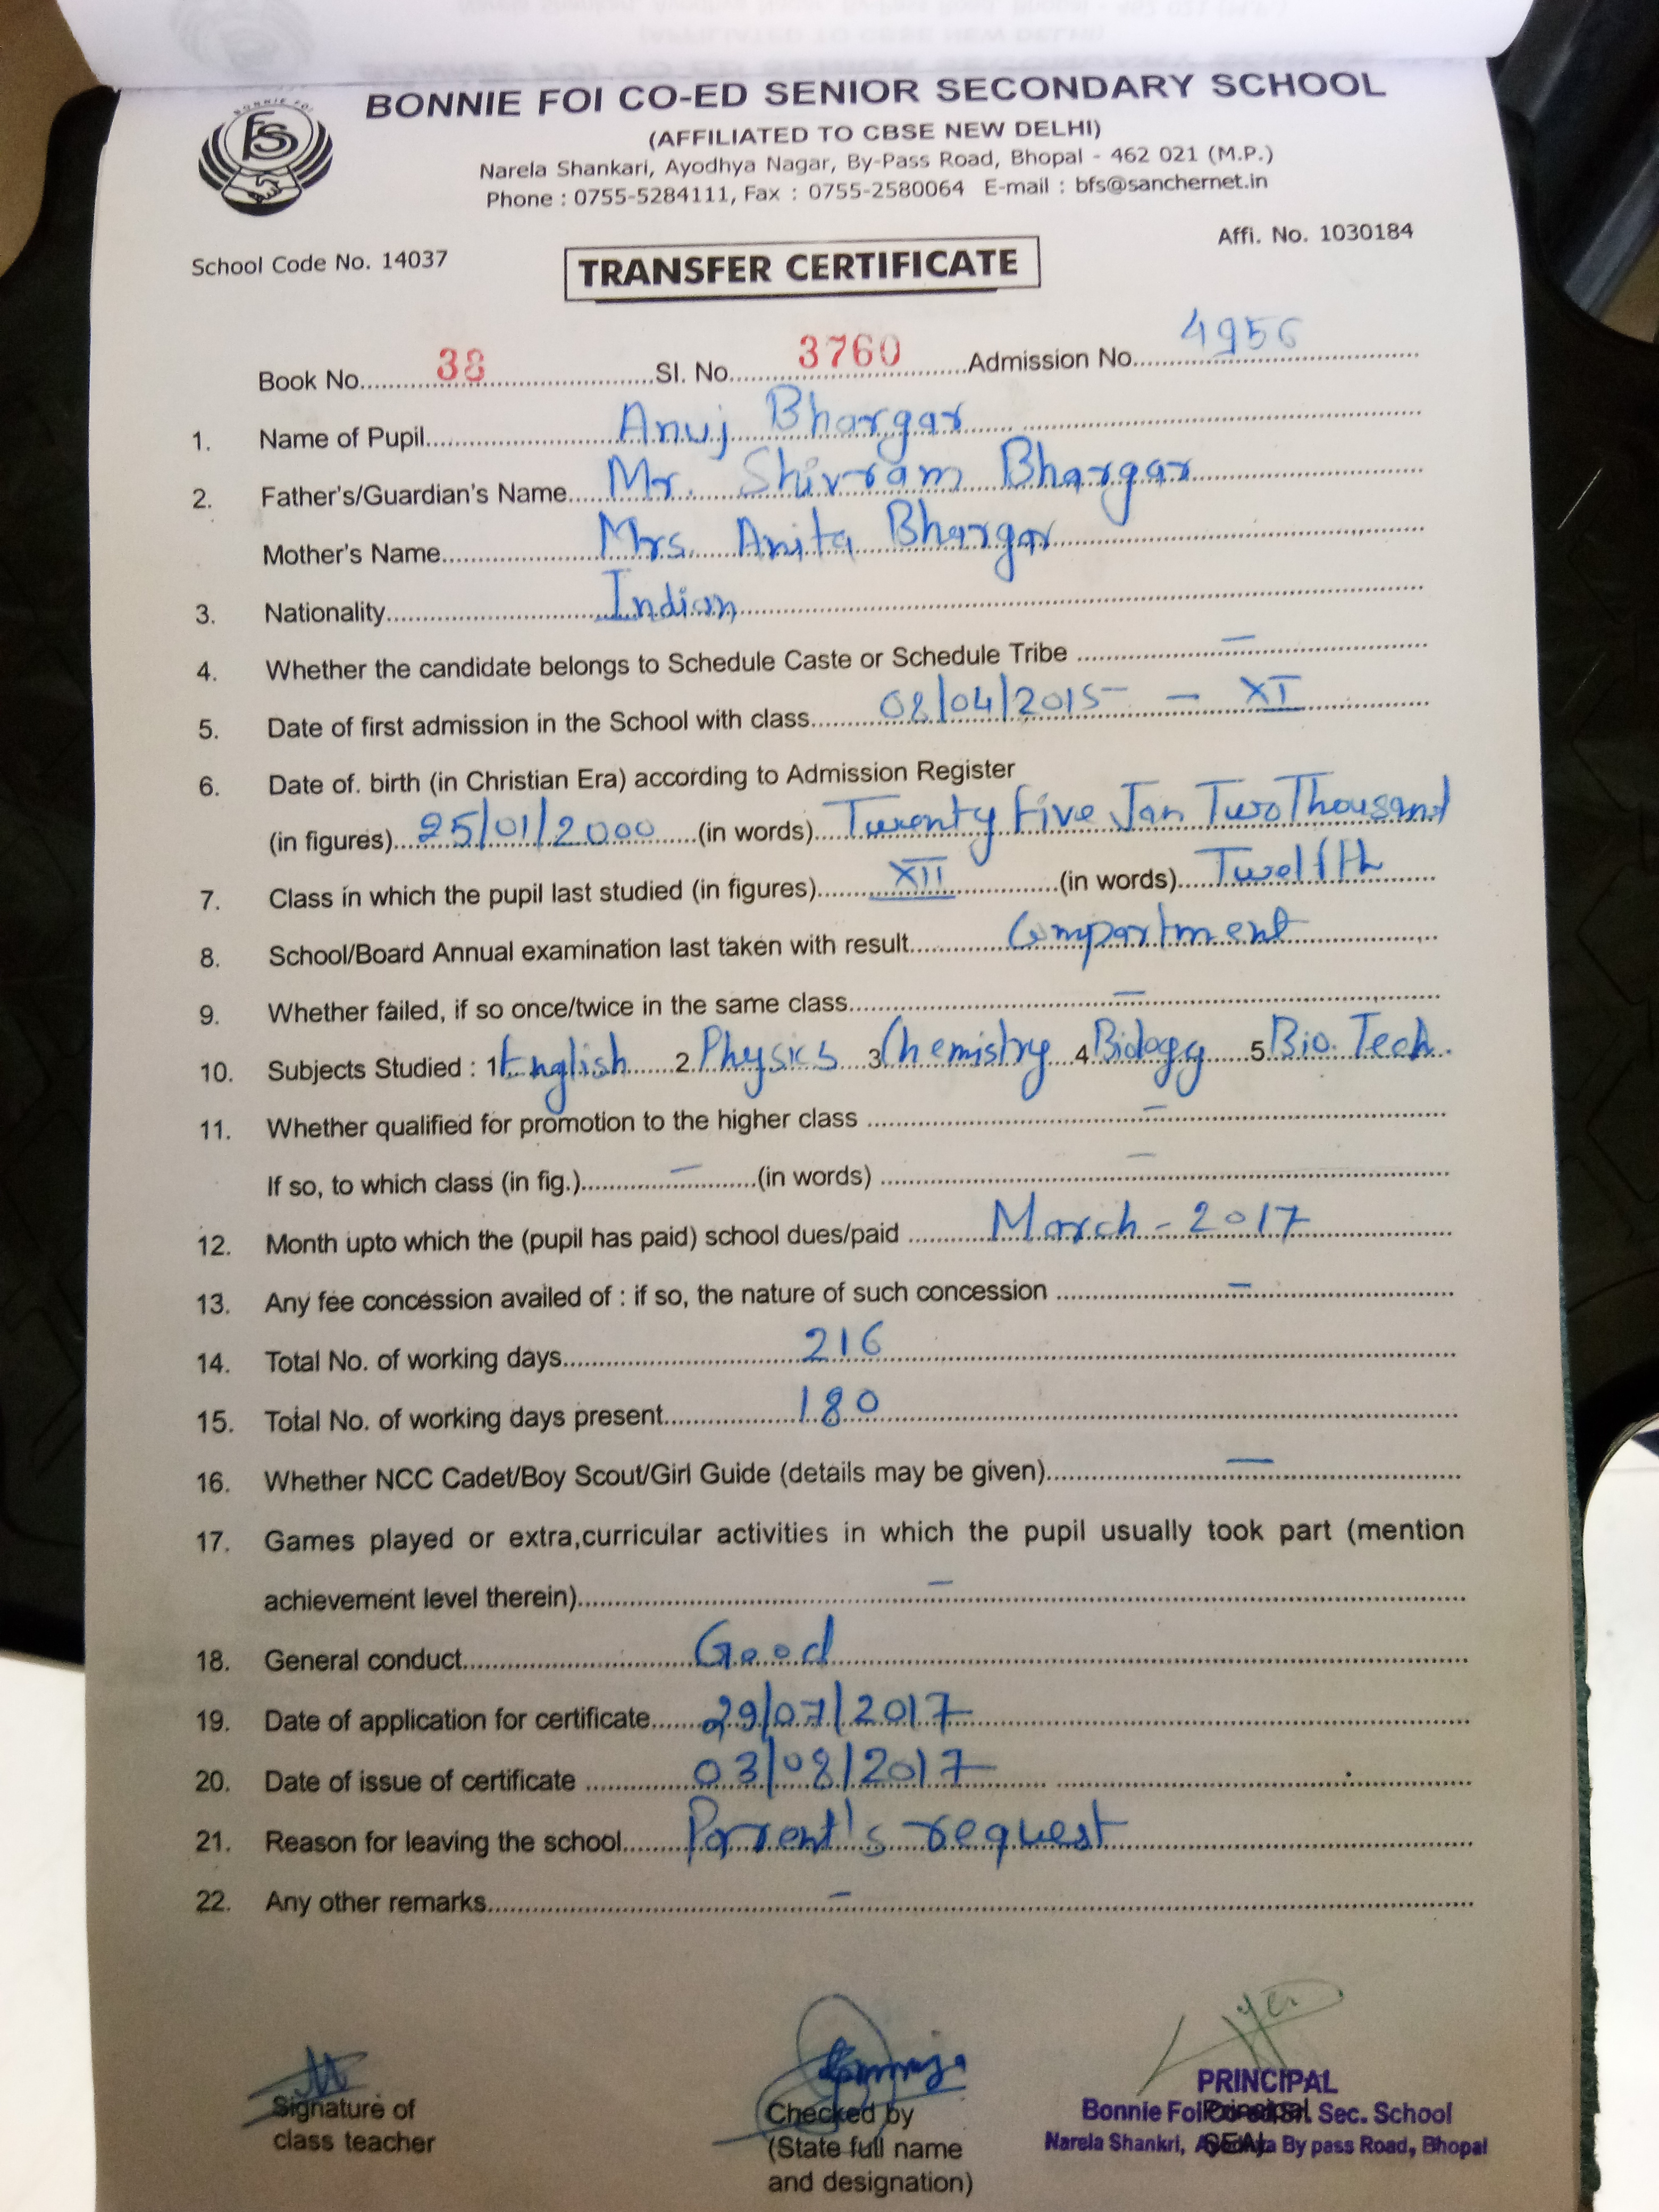 BONNIE FOI
BONNIE FOI CO-ED SENIOR SECONDARY SCHOOL
(AFFILIATED TO CBSE NEW DELHI)
Narela Shankari, Ayodhya Nagar, By-Pass Road, Bhopal - 462 021 (M.P.)
Phone : 0755-5284111, Fax : 0755-2580064 E-mail : bfs@sanchernet.in
Affi. No. 1030184
School Code No. 14037
TRANSFER CERTIFICATE
Book No. 38 Sl. No. 3760 Admission No. 4956
1. Name of Pupil Anuj Bhargav
2. Father's/Guardian's Name Mr. Shivram Bhargav
Mother's Name Mrs. Anita Bhargav
3. Nationality Indian
4. Whether the candidate belongs to Schedule Caste or Schedule Tribe —
5. Date of first admission in the School with class 08/04/2015 — XI
6. Date of. birth (in Christian Era) according to Admission Register
(in figures) 25/01/2000 (in words) Twenty Five Jan Two Thousand
7. Class in which the pupil last studied (in figures) XII (in words) Twelfth
8. School/Board Annual examination last taken with result Compartment
9. Whether failed, if so once/twice in the same class —
10. Subjects Studied : 1 English 2 Physics 3 Chemistry 4 Biology 5 Bio. Tech.
11. Whether qualified for promotion to the higher class —
If so, to which class (in fig.) — (in words) —
12. Month upto which the (pupil has paid) school dues/paid March - 2017
13. Any fee concession availed of : if so, the nature of such concession —
14. Total No. of working days 216
15. Total No. of working days present 180
16. Whether NCC Cadet/Boy Scout/Girl Guide (details may be given) —
17. Games played or extra,curricular activities in which the pupil usually took part (mention
achievement level therein) —
18. General conduct Good
19. Date of application for certificate 29/07/2017
20. Date of issue of certificate 03/08/2017
21. Reason for leaving the school Parent's request
22. Any other remarks —
Signature of
class teacher
Checked by
(State full name
and designation)
PRINCIPAL
Principal
Bonnie Foi Co-ed Sr. Sec. School
SEAL
Narela Shankri, Ayodhya By pass Road, Bhopal